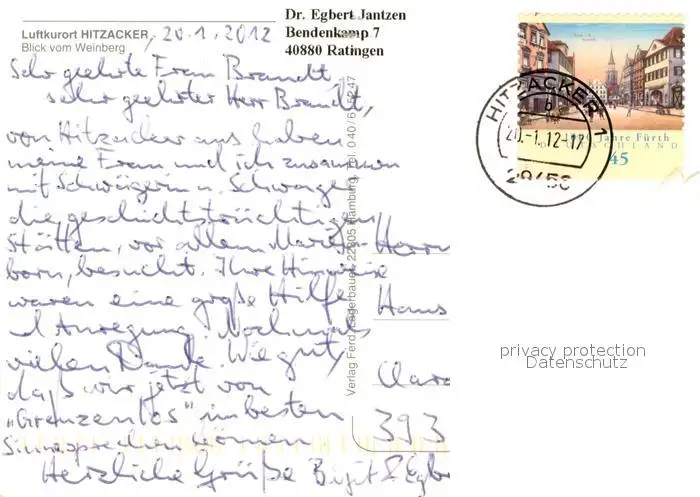 Luftkurort HITZACKER, 20.1.2012
Blick vom Weinberg
Dr. Egbert Jantzen
Bendenkamp 7
40880 Ratingen
Sehr geehrte Frau Brandt,
sehr geehrter Herr Brandt,
von Hitzacker aus haben
meine Frau und ich zusammen
mit Schwägerin u. Schwager
die geschichtsträchtigen
Stätten, vor allem Marien-
born, besucht. Ihre Hinweise
waren eine große Hilfe
u. Anregung. Nochmals
vielen Dank. Wie gut,
daß wir jetzt von
„Grenzenlos“ im besten
Sinne sprechen können
Herzliche Grüße Birgit & Egbe
Verlag Ferd. Lagerbauer, 22905 Hamburg, Tel. 040/
Herrn
Hans
Clara
393
HITZACKER
20.-1.12-17
29456
1000 Jahre Fürth
DEUTSCHLAND
45
privacy protection
Datenschutz